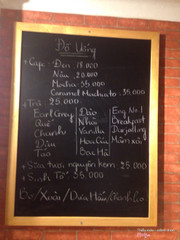 Đồ Uống
+ Cafe: Đen 18.000
Nâu 20.000
Mocha 35.000
Caramel Machiato 35.000
+ Trà: 25.000
Earl Grey Đào Eng No 1
Quế Nhài Breakfast
Chanh Vanilla Darjeeling
Dâu Hoa Cúc Mâm xôi
Táo Bạc Hà
+ Sữa tươi nguyên kem 25.000
+ Sinh Tố 35.000
Bơ/Xoài/Dưa Hấu/Chanh Leo